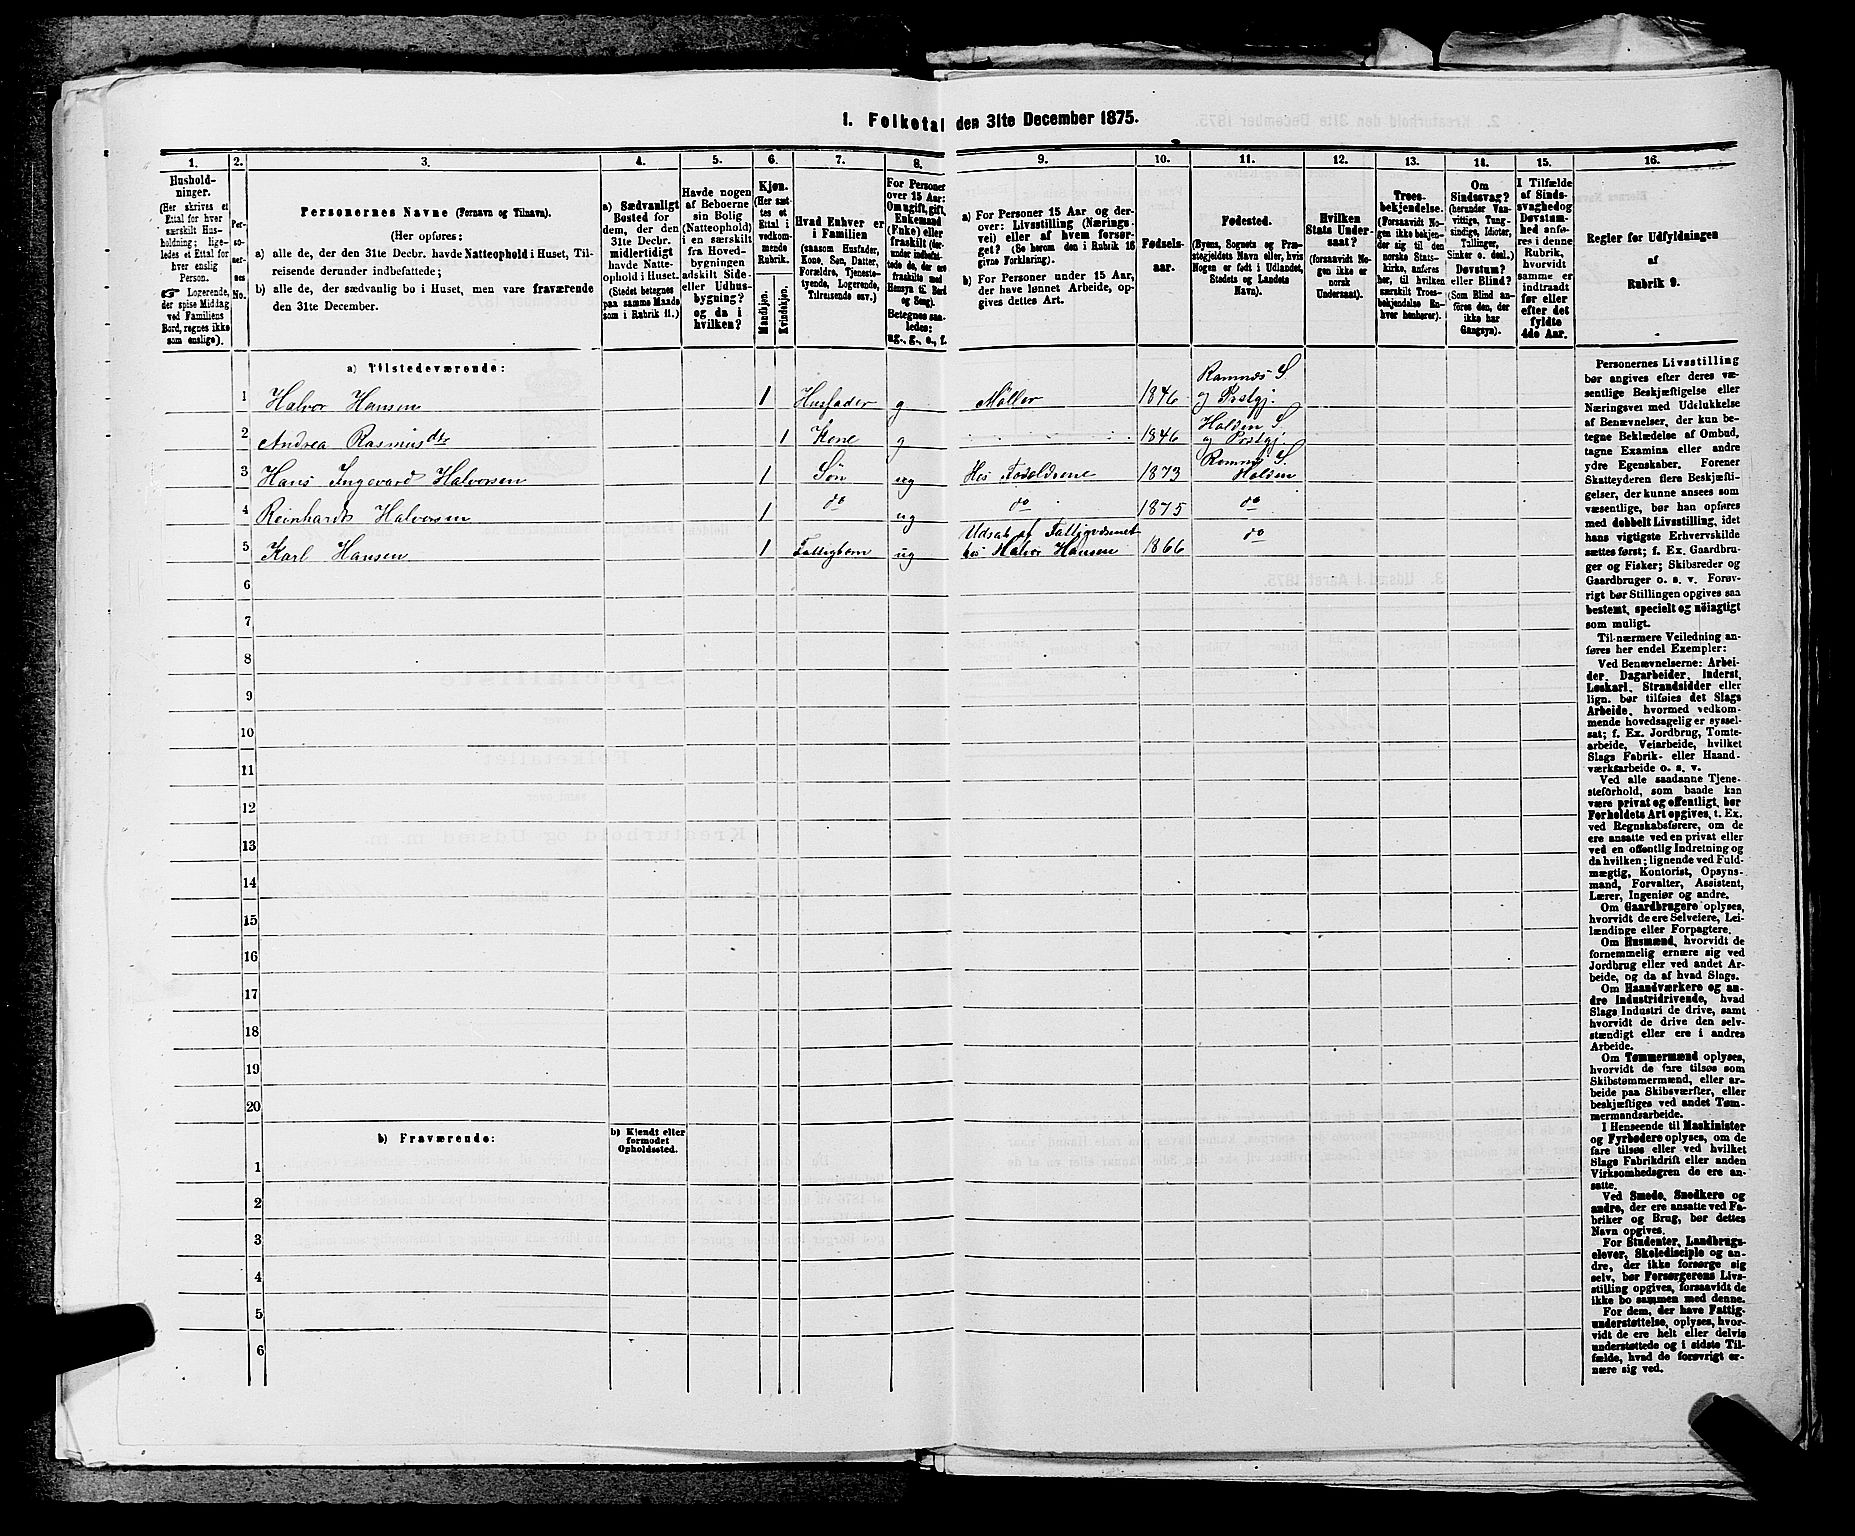 1. Folketal den 31te December 1875.
1.
2.
3.
4.
5.
6.
7.
8.
9.
10.
11.
12.
13.
14.
15.
16.
Husholdninger.
(Her skrives et
Ettal for hver
særskilt Husholdning; ligeledes et Ettal for
hver enslig
Person.
☞ Logerende,
der spise Middag
ved Familiens
Bord, regnes ikke
som enslige).
Personernes No.
Personernes Navne (Fornavn og Tilnavn).
(Her opføres:
a) alle de, der den 31te Decbr. havde Natteophold i Huset, Tilreisende derunder indbefattede;
b) alle de, der sædvanlig bo i Huset, men vare fraværende
den 31te December.
a) Sædvanligt
Bosted for
dem, der den
31te Decbr.
midlertidigt
havde Natteophold i Huset.
(Stedet betegnes
paa samme Maade
som i Rubrik 11.)
Havde nogen
af Beboerne
sin Bolig
(Natteophold)
i en særskilt
fra Hovedbygningen
adskilt Side-
eller Udhusbygning?
og da i
hvilken?
Kjøn.
(Her sættes et
Ettal i
vedkommende
Rubrik.
Mandkjøn.
Kvindekjøn.
Hvad Enhver er
i Familien
(saasom Husfader,
Kone, Søn, Datter,
Forældre, Tjenestetyende, Logerende,
Tilreisende osv.)
For Personer
over 15 Aar:
Om ugift, gift,
Enkemand
(Enke) eller
fraskilt (derunder indbefattede de, der ere
fraskilte med
Hensyn til Bord
og Seng).
Betegnes saaledes:
ug., g., e., f.
a) For Personer 15 Aar og derover: Livsstilling (Næringsvei) eller af hvem forsørget? (Se herom den i Rubrik 16
givne Forklaring).
b) For Personer under 15 Aar,
der have lønnet Arbeide, opgives dettes Art.
Fødselsaar.
Fødested.
(Byens, Sognets og Præstegjeldets Navn eller, hvis
Nogen er født i Udlandet,
Stedets og Landets
Navn).
Hvilken
Stats Undersaat?
(forsaavidt Nogen ikke er
norsk
Undersaat).
Troesbekjendelse.
(Forsaavidt Nogen ikke bekjender sig til den
norske Statskirke, anføres
her, til hvilken
særskilt Troesbekjendelse Enhver henhører).
Om
Sindssvag?
(herunder Vanvittige, Tungsindige, Idioter,
Tullinger,
Sinker o. desl.)
Døvstum?
eller Blind?
(Som Blind anføres den, der
ikke har
Gangsyn).
I Tilfælde
af Sindssvaghed og
Døvstumhed anføres i denne
Rubrik,
hvorvidt
samme er
indtraadt
før eller
efter det
fyldte
4de Aar.
Regler for Udfyldningen
af
Rubrik 9.
a) Tilstedeværende:
1 Halvor Hansen 1 Husfader g Møller 1846 Ramnæs S og Præstgj.
2 Andrea Rasmusdtr 1 Kone g 1846 Holden S og Præstgj.
3 Hans Ingevard Halvorsen 1 Søn ug Hos Forældrene 1873 Ramnæs S. Holden
4 Reinhardt Halvorsen 1 do ug do 1875 do
5 Karl Hansen 1 Fattigbarn ug Udsat af Fattigvæsenet hos Halvor Hansen 1866 do
6
7
8
9
10
11
12
13
14
15
16
17
18
19
20
b) Fraværende:
b) Kjendt eller
formodet
Opholdssted.
1
2
3
4
5
6
Personernes Livsstilling
bør angives efter deres væsentlige Beskjæftigelse eller
Næringsvei med Udelukkelse
af Benævnelser, der kun betegne Beklædelse af Ombud,
tagne Examina eller andre
ydre Egenskaber. Forener
Skatteyderen flere Beskjæftigelser, der kunne ansees som
væsentlige, bør han opføres
med dobbelt Livsstilling, idet
hans vigtigste Erhvervskilde
sættes først; f. Ex. Gaardbruger og Fisker; Skibsreder og
Gaardbruger o. s. v. Forøvrigt bør Stillingen opgives saa
bestemt, specielt og nøiagtigt
som muligt.
Til nærmere Veiledning anføres her endel Exempler:
Ved Benævnelserne: Arbeider, Dagarbeider, Inderst,
Løskarl, Strandsidder eller
lign. bør tilføies det Slags
Arbeide, hvormed vedkommende hovedsagelig er sysselsat; f. Ex. Jordbrug, Tomtearbeide, Veiarbeide, hvilket
Slags Fabrik- eller Haandværksarbeide o. s. v.
Ved alle saadanne Tjenesteforhold, som baade kan
være privat og offentligt, bør
Forholdets Art opgives, t. Ex.
ved Regnskabsførere, om de
ere ansatte ved en privat eller
ved en offentlig Indretning og
da hvilken; lignende ved Fuldmægtig, Kontorist, Opsynsmand, Forvalter, Assistent,
Lærer, Ingeniør og andre.
Om Gaardbrugere oplyses,
hvorvidt de ere Selveiere, Leilændinge eller Forpagtere.
Om Husmænd, hvorvidt de
fornemmelig ernære sig ved
Jordbrug eller ved andet Arbeide, og da af hvad Slags.
Om Haandværkere og andre Industridrivende, hvad
Slags Industri de drive, samt
hvorvidt de drive den selvstændigt eller ere i andres
Arbeide.
Om Tømmermænd oplyses,
hvorvidt de fare tilsøs som
Skibstømmermænd, eller arbeide paa Skibsværfter, eller
beskjæftiges ved andet Tømmermandsarbeide.
I Henseende til Maskinister
og Fyrbødere oplyses, om de
fare tilsøs eller ved hvilket
Slags Fabrikdrift eller anden
Virksomhedsgren de ere ansatte.
Ved Smede, Snedkere og
andre, der ere ansatte ved Fabriker og Brug, bør dettes
Navn opgives.
For Studenter, Landbrugselever, Skoledisciple og andre, der ikke forsørge sig
selv, bør Forsørgerens Livsstilling opgives, forsaavidt de
ikke bo sammen med denne.
For dem, der have Fattigunderstøttelse, oplyses, hvorvidt de ere helt eller delvis
understøttede og i sidste Tilfælde, hvad de forøvrigt ernære sig ved.